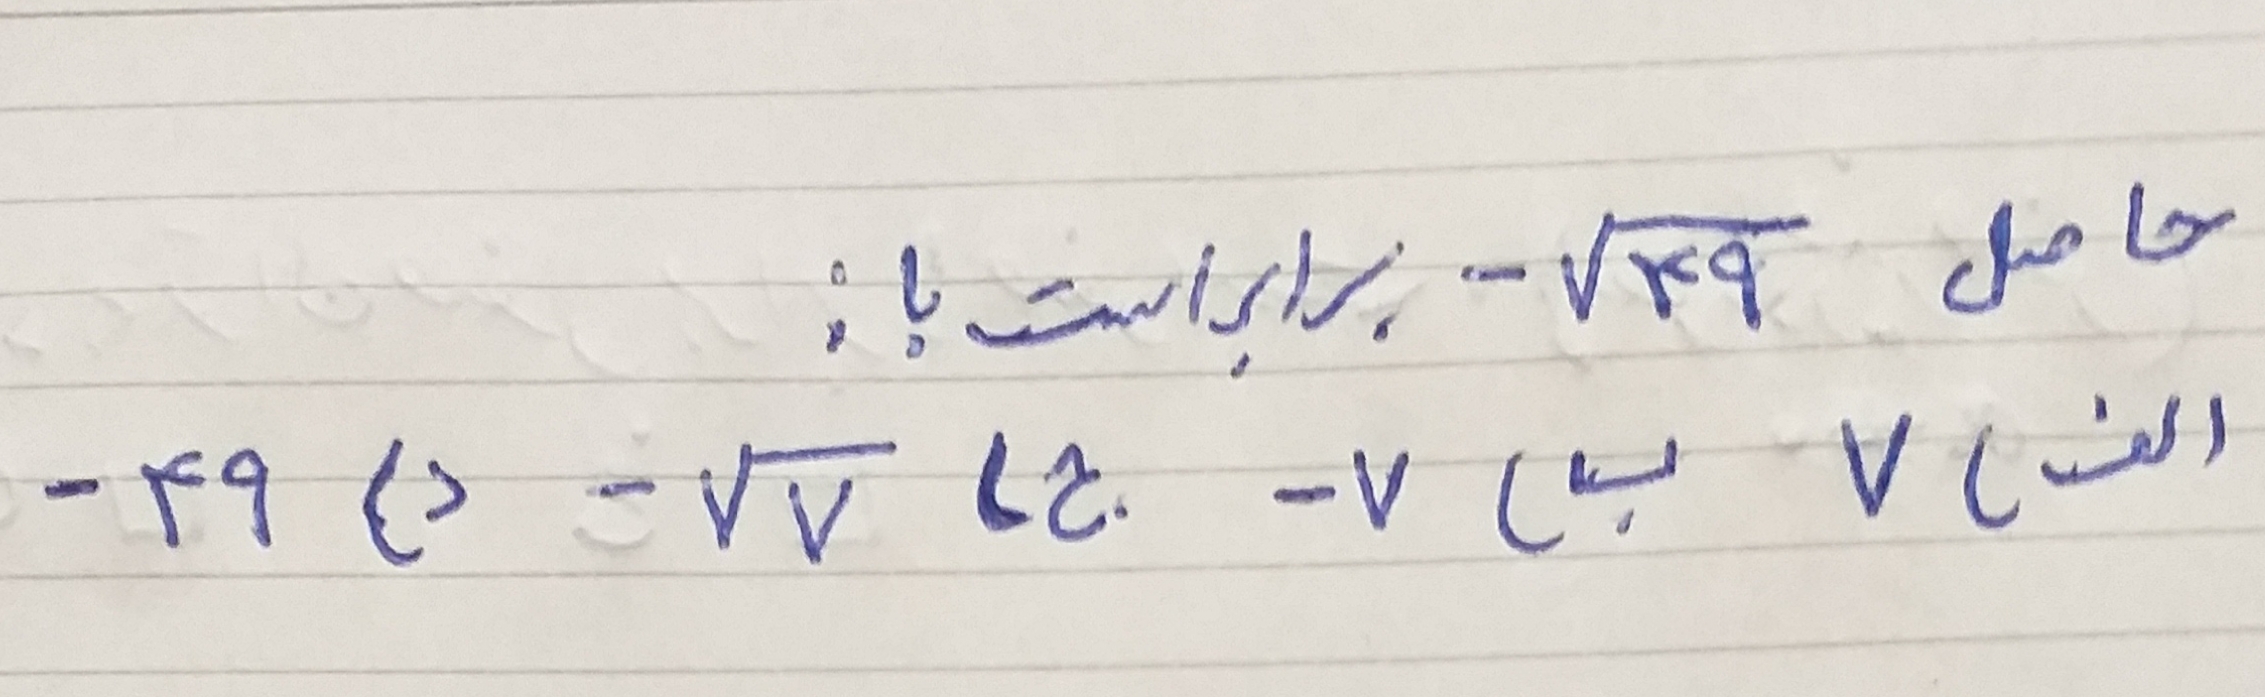 حاصل -√۴۹ برابر است با:
الف) ۷ ب) -۷ ج) -√۷ د) -۴۹